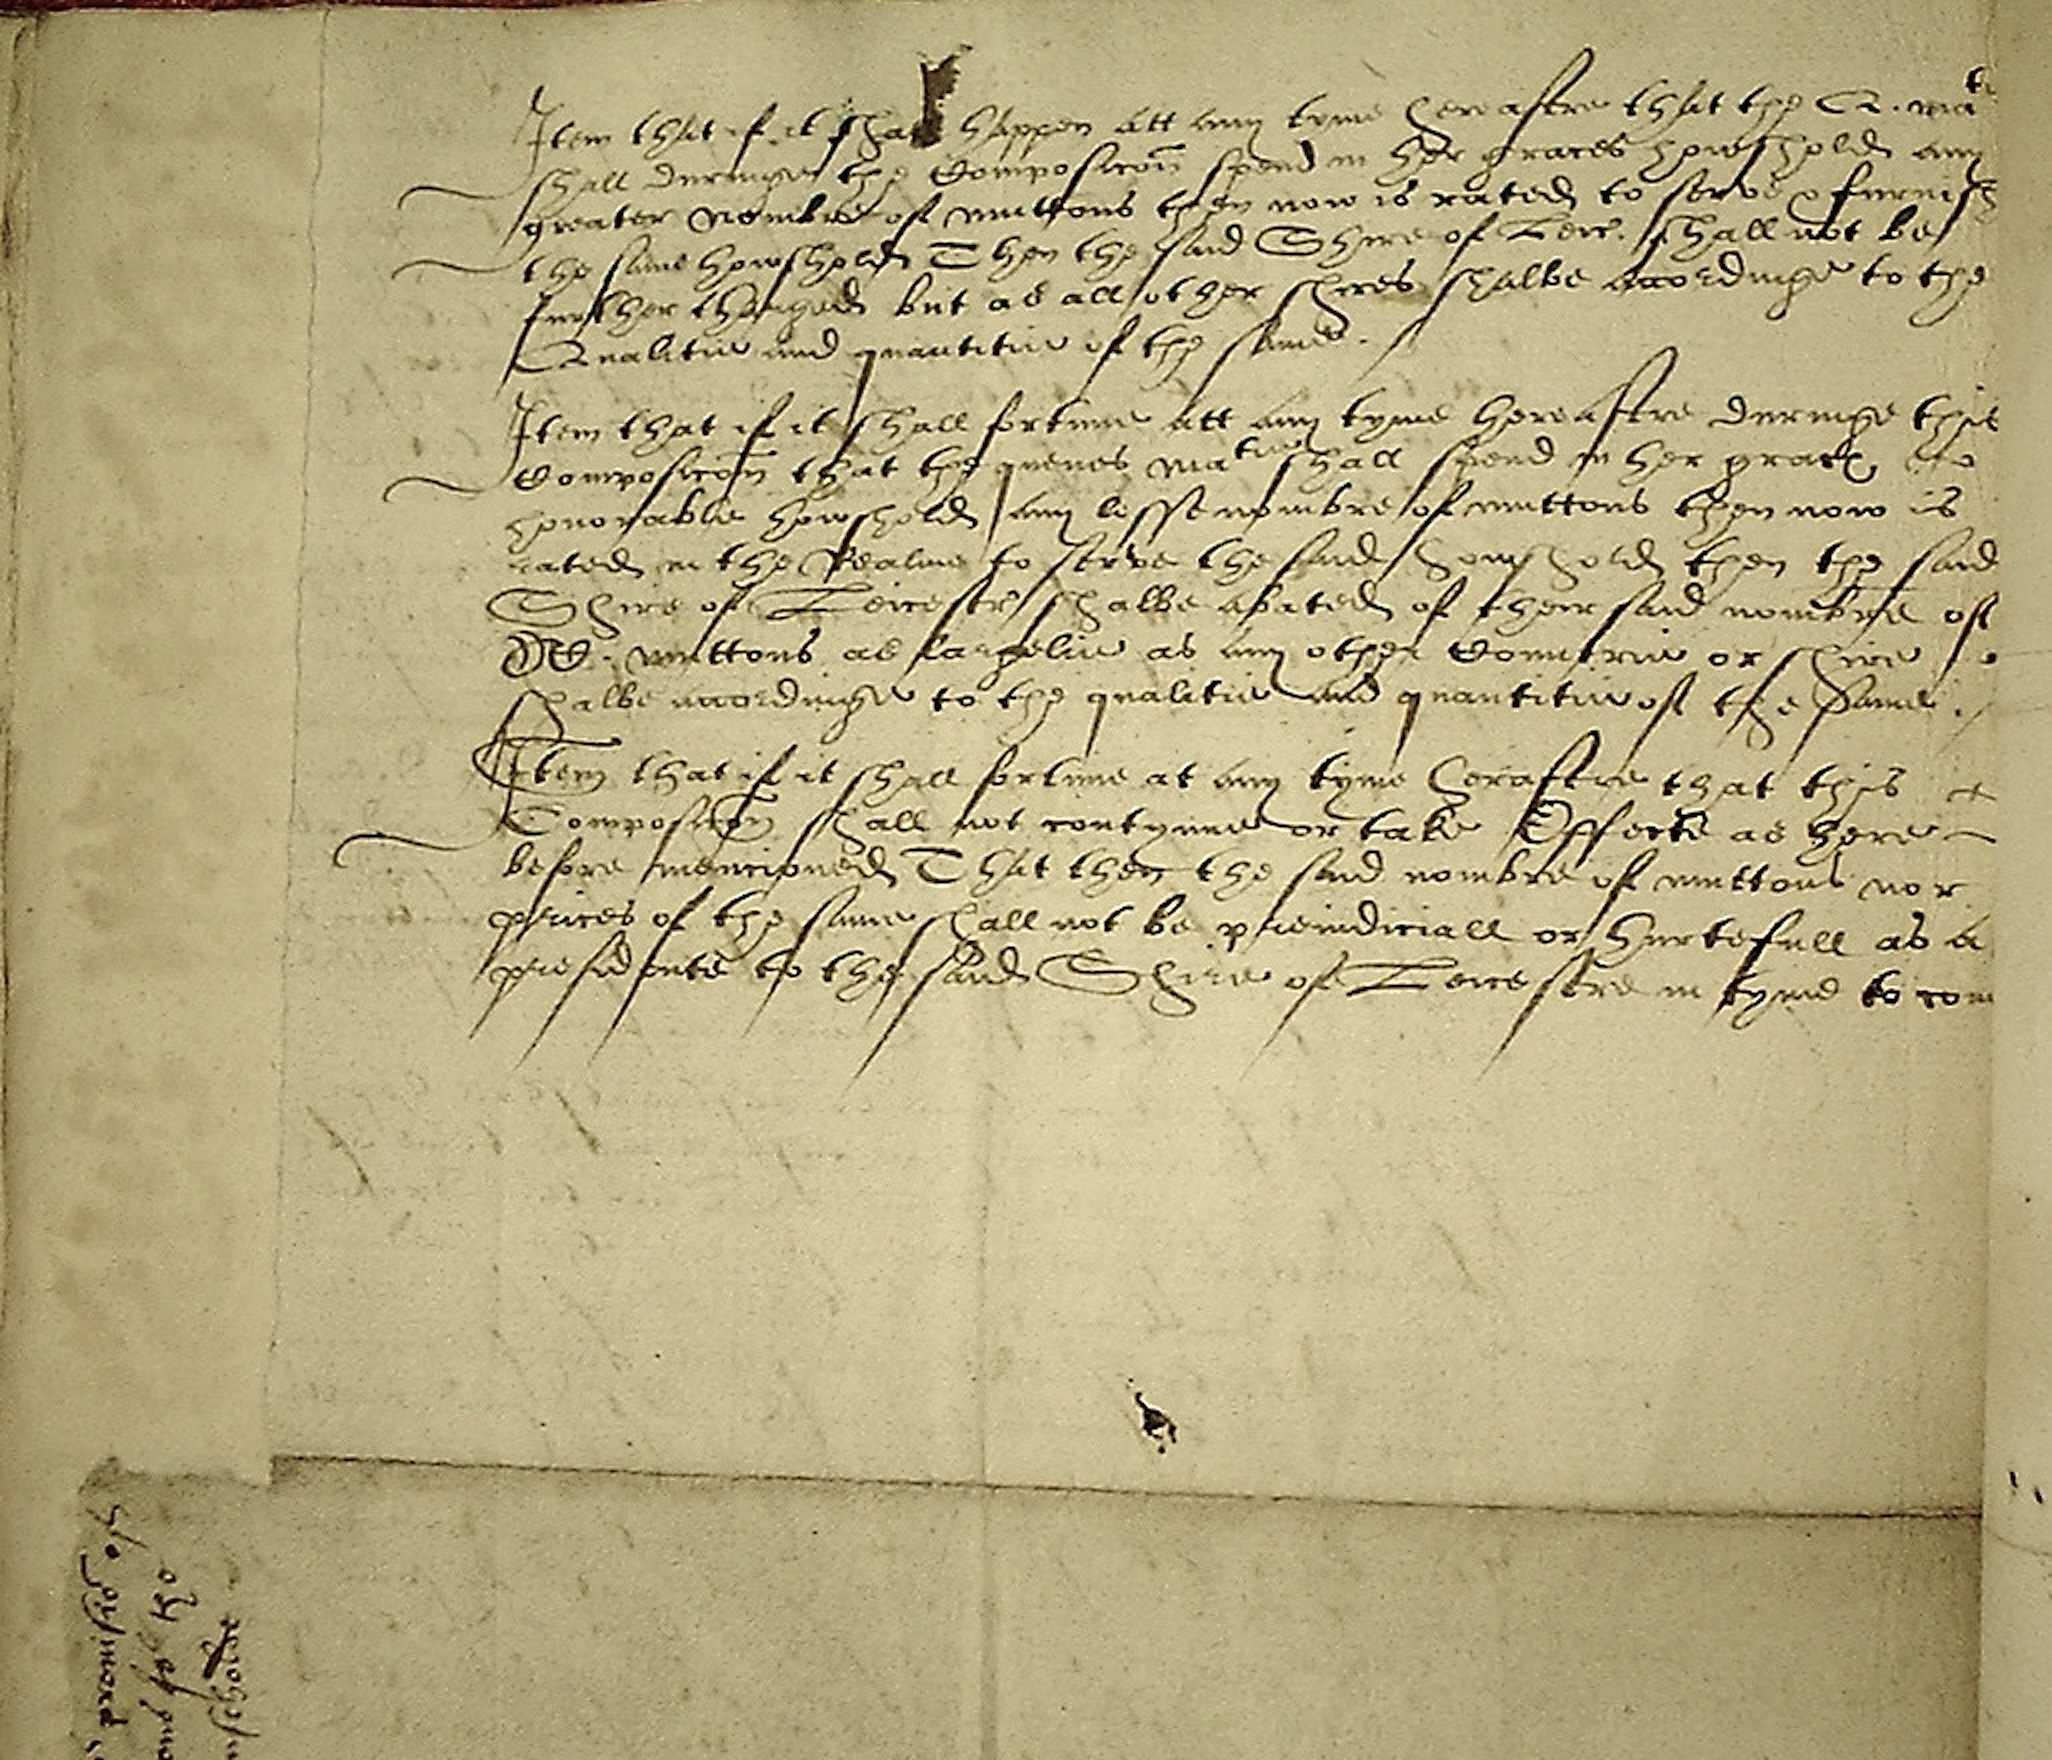 Item that if it shall happen att any tyme hereaftre that the Q. matie
shall duringe the Composicon spend in her graces howshold any
greater nombre of muttons then now is rated to serve & furnish
the same howshold Then the said Shire of Leic. shall not be
further charged but as all other shires shalbe accordinge to the
Qualitie and quantitie of the same.
Item that if it shall fortune att any tyme hereaftre duringe this
Composicon that the quenes matie shall spend in her grac
honorable howshold any lesse nombre of muttons then now is
rated in the Realme to serve the said howshold then the said
Shire of Leicestr shalbe abated of their said nombre of
muttons as largelie as any other Countrie or shire
shalbe accordinge to the qualitie and quantitie of the same.
Item that if it shall fortune at any tyme heraftre that this
Composicon shall not contynue or take Effecte as here
before mencioned That then the said nombre of muttons nor
prices of the same shall not be preiudiciall or hurtefull as a
presidente to the said Shire of Leicestre in tyme to com
promisio